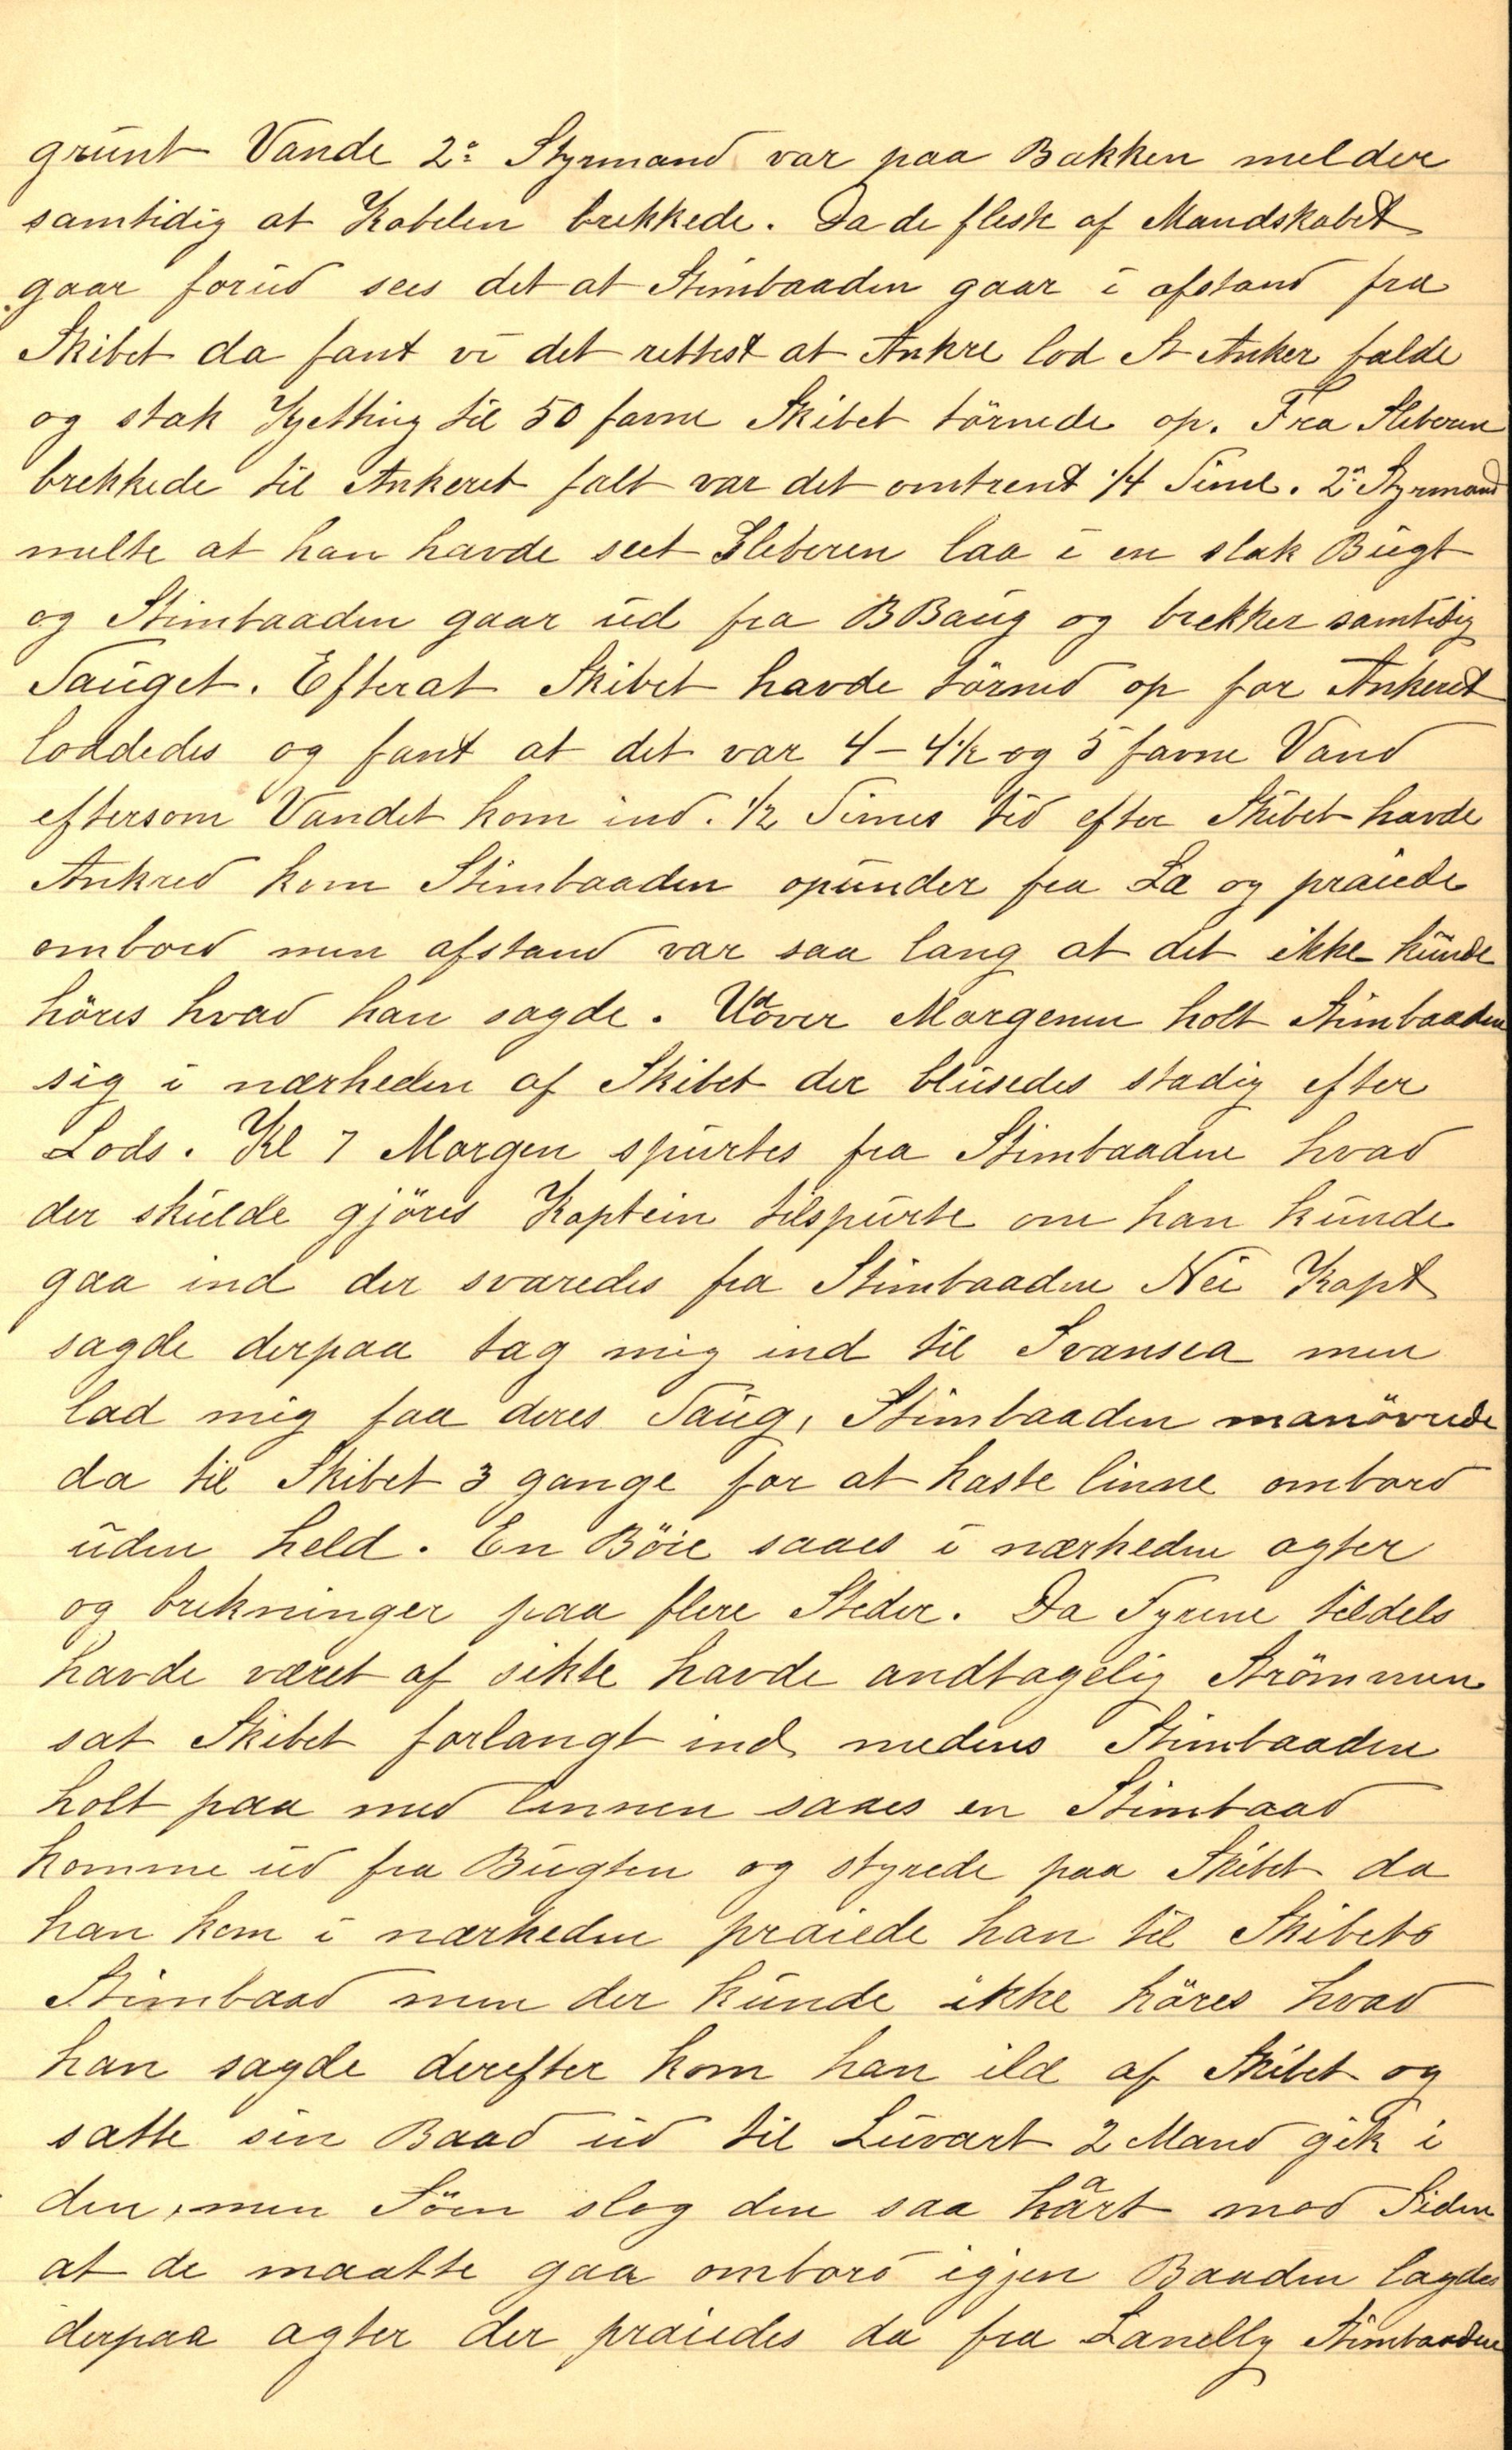 grunt Vande 2: Styrmand var paa Bakken melder
samtidig at Kabelen brekkede. Da de fleste af Mandskabet
gaar forud sees det at Stimbaaden gaar i afstand fra
Skibet da fant vi det rettest at Ankre lod St Anker falde
og stak Kjetting til 50 favne Skibet törnede op. Fra Sleberen
brekkede til Ankeret falt var det omtrent 1/4 Time. 2n Styrmand
melte at han havde seet Sleberen laa i en slak Bugt
og Stimbaaden gaar ud fra BBaug og brekker samtidig
Tauget. Efterat Skibet havde törned op for Ankeret
loddedes og fant at det var 4 - 4 1/2 og 5 favne Vand
eftersom Vandet kom ind. 1/2 Times tid efter Skibet havde
Ankred kom Stimbaaden opunder fra Læ og praiede
ombord men afstand var saa lang at det ikke kunde
höres hvad han sagde. Udover Morgenen holt Stimbaaden
sig i nærheden af Skibet der blusedes stadig efter
Lods. Kl 7 Morgen spurtes fra Stimbaaden hvad
der skulde gjöres Kaptein tilspurte om han kunde
gaa ind der svaredes fra Stimbaaden Nei Kapt
sagde derpaa tag mig ind til Svansea men
lad mig faa deres Taug, Stimbaaden manövrede
da til Skibet 3 gange for at kaste linne ombord
uden held. En Böie saaes i nærheden agter
og brekninger paa flere Steder. Da Fyrene tildels
havde været af sikte havde andtagelig Strömmen
sat Skibet forlangt ind medens Stimbaaden
holt paa med linnen saaes en Stimbaad
komme ud fra Bugten og styrede paa Skibet da
han kom i nærheden praiede han til Skibets
Stimbaad men der kunde ikke höres hvad
han sagde derefter kom han ild af Skibet og
satte sin Baad ud til Luvart 2 Mand gik i
den, men Söen slog den saa hart mod Siden
at de maatte gaa ombord igjen Baaden lagdes
derpaa agter der praiedes da fra Lanelly Stimbaaden